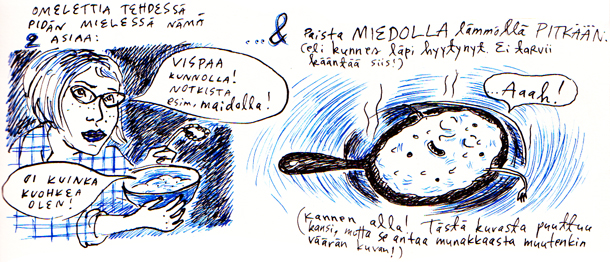 OMELETTIA TEHDESSÄ
PIDÄN MIELESSÄ NÄMÄ
2 ASIAA:
VISPAA
KUNNOLLA!
NOTKISTA
esim. maidolla!
OI KUINKA
KUOHKEA
OLEN!
...& Paista MIEDOLLA lämmöllä PITKÄÄN.
(eli kunnes läpi hyytynyt. Ei tarvii
kääntää siis!)
...Aaah!
(Kannen alla! Tästä kuvasta puuttuu
kansi, mutta se antaa munakkaasta muutenkin
väärän kuvan!)